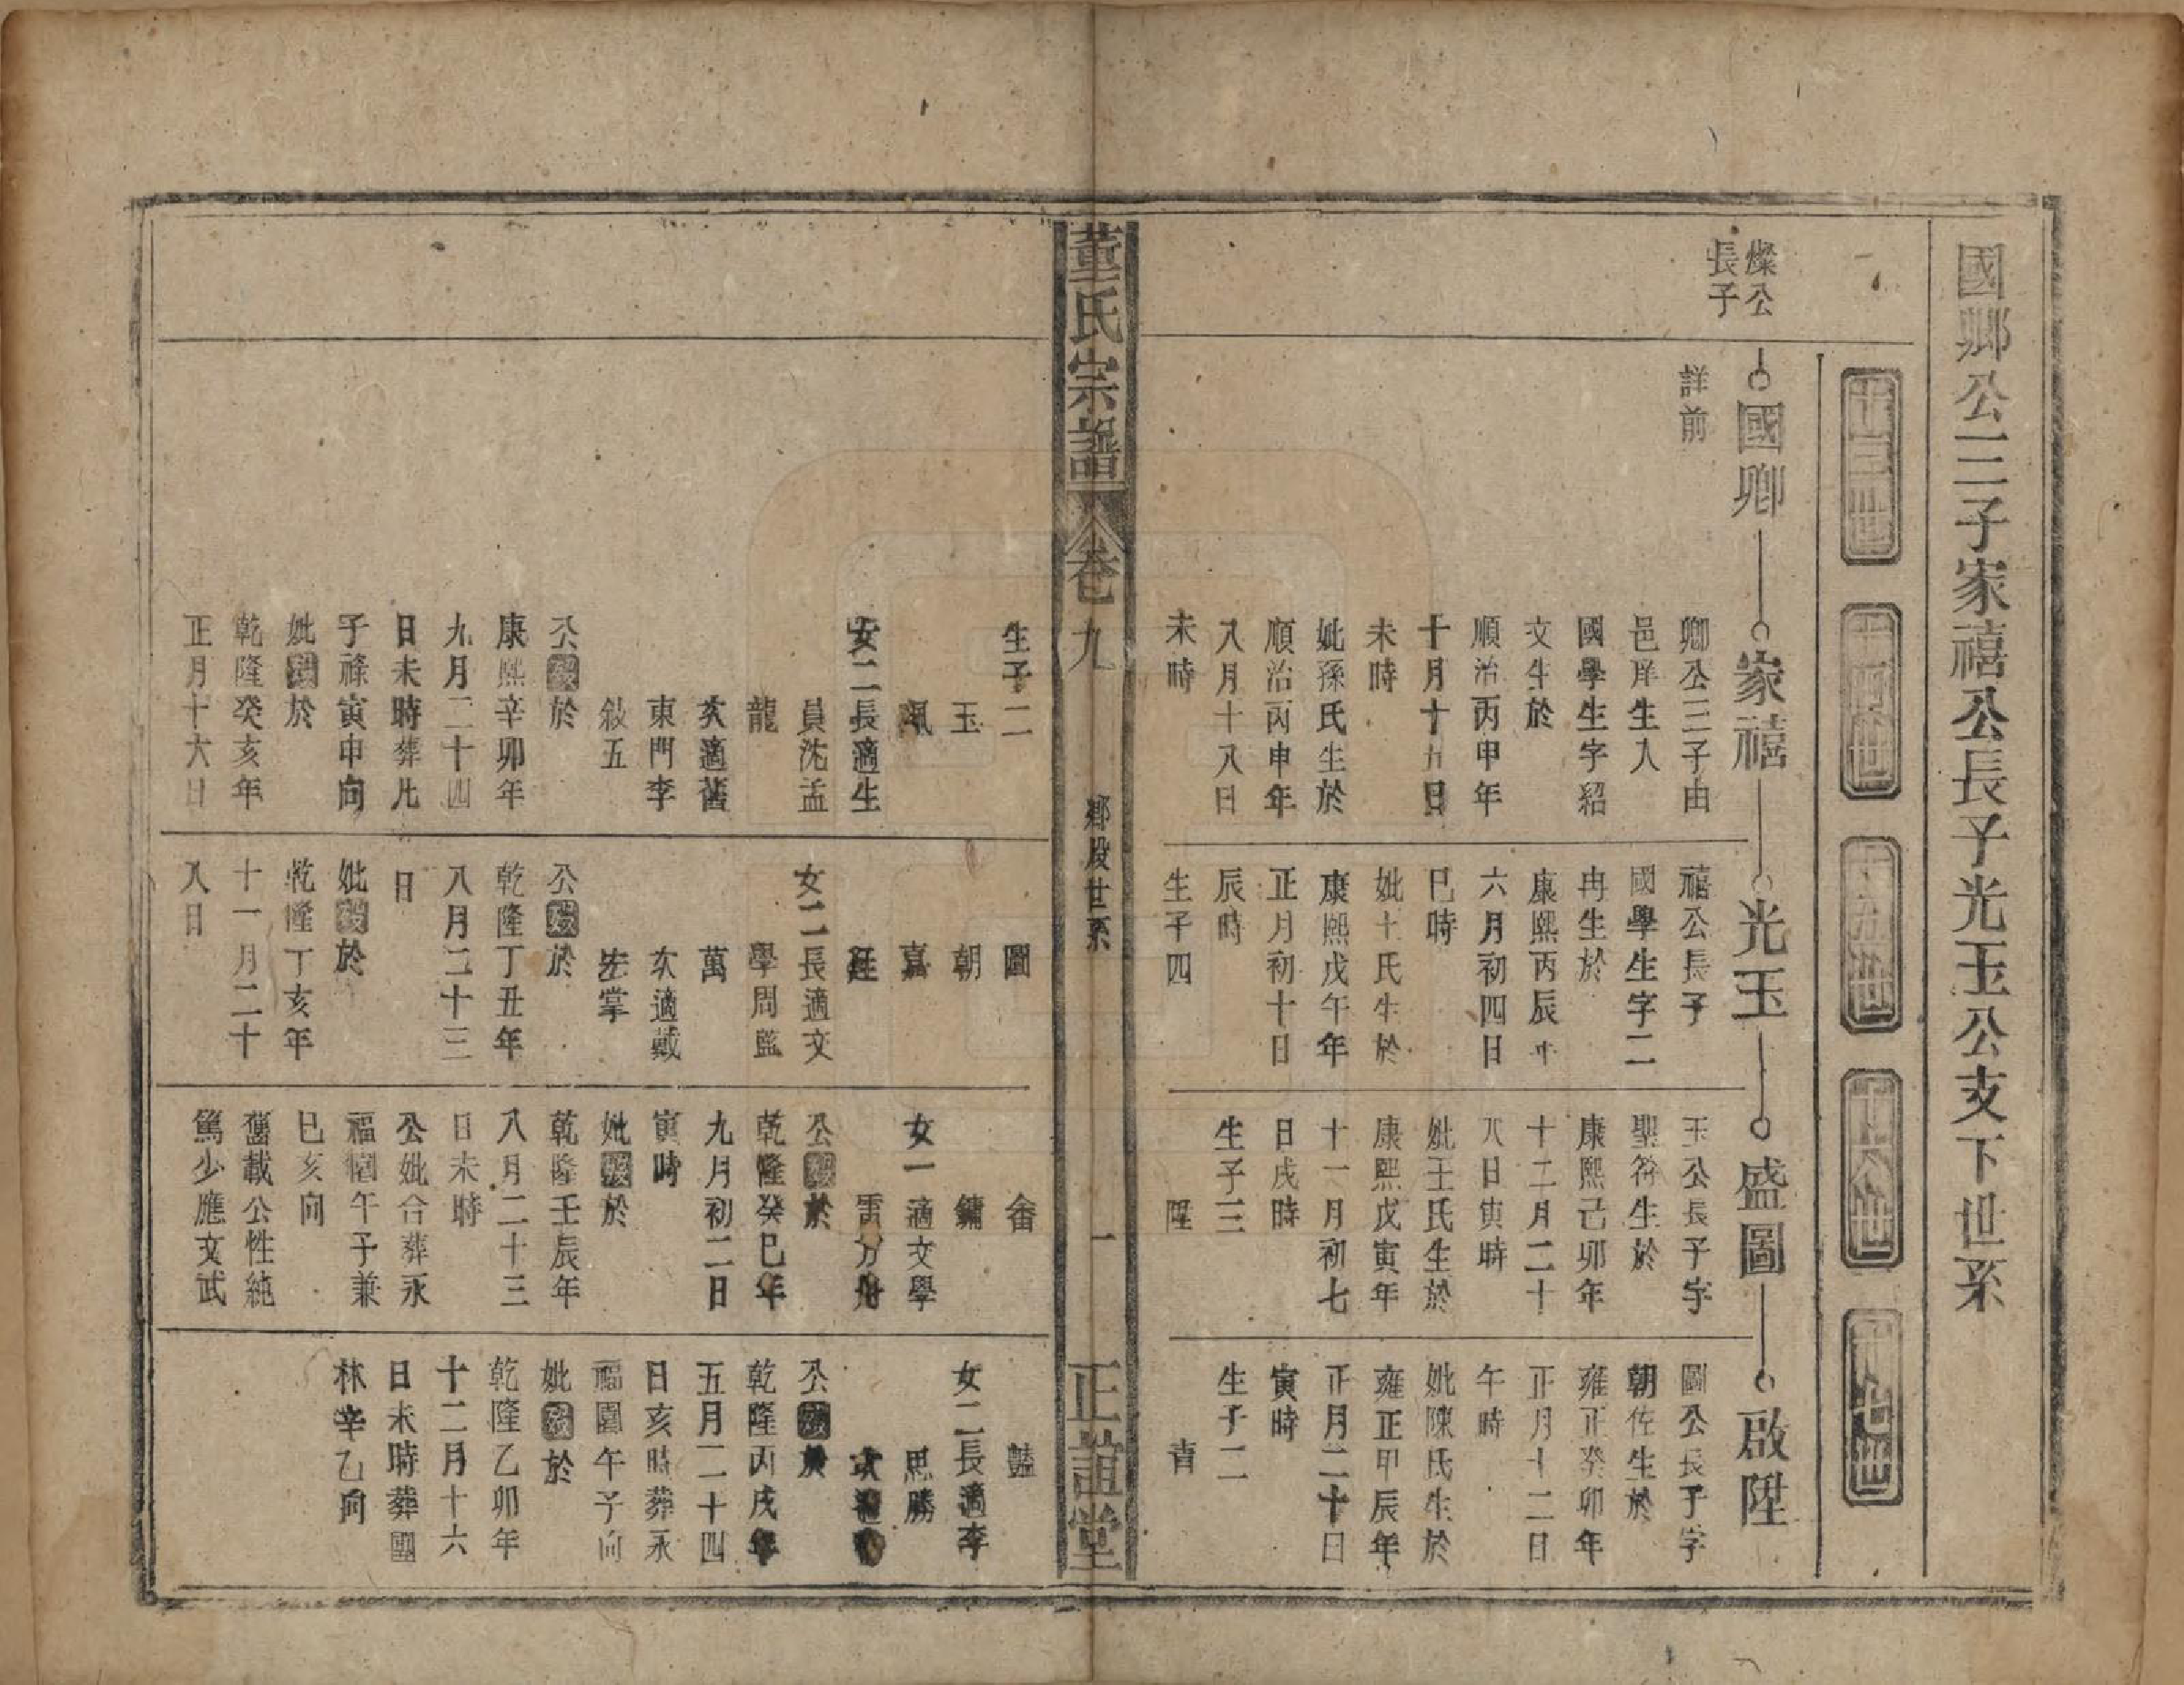 國鄉公三子家禧公長子光玉公支下世系
十三世
十四世
十五世
十六世
十七世
燦公
長子
國卿
詳前
家禧
卿公三子由
邑庠生入
國學生字紹
文生於
順治丙申年
十月十九日
未時
妣孫氏生於
順治丙申年
八月十八日
未時
光玉
禧公長子
國學生字二
冉生於
康熙丙辰年
六月初四日
巳時
妣王氏生於
康熙戊午年
正月初十日
辰時
生子四
盛圖
玉公長子字
聖符生於
康熙己卯年
十二月二十
八日寅時
妣王氏生於
康熙戊寅年
十一月初七
日戌時
生子三
陞
啟陞
圖公長子字
朝佐生於
雍正癸卯年
正月十二日
午時
妣陳氏生於
雍正甲辰年
正月二十日
寅時
生子二
董氏宗譜
卷九
鄉股世系
一
正誼堂
生子二
玉
珮
女二長適生
員沈孟
龍
次適舊
東門李
敍五
公歿於
康熙辛卯年
九月二十四
日未時葬凡
子祿寅申向
妣歿於
乾隆癸亥年
正月十六日
圖
朝
嘉
廷
女二長適文
學周監
萬
次適戴
先掌
公歿於
乾隆丁丑年
八月二十三
日
妣歿於
乾隆丁亥年
十一月二十
八日
鏞
女一適文學
公歿於
乾隆癸巳年
九月初二日
寅時
妣歿於
乾隆壬辰年
八月二十三
日未時
公妣合葬永
福園午子兼
巳亥向
舊載公性純
篤少應文武
女二長適李
思勝
公歿於
乾隆丙戌年
五月二十四
日亥時葬永
福園午子向
妣歿於
乾隆乙卯年
十二月十六
日未時葬園
林辛乙向